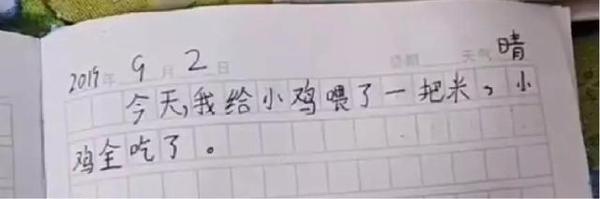 2019年9月2日 星期 天气晴
今天,我给小鸡喂了一把米,小
鸡全吃了。